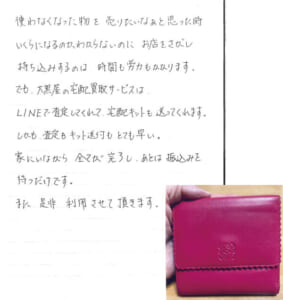 使わなくなった物を売りたいなぁと思った時
いくらになるのかわからないのに お店をさがし
持ち込みするのは 時間も労力もかかります。
でも、大黒屋の宅配買取サービスは、
LINEで査定してくれて、宅配キットも送ってくれます。
しかも 査定もキット送付も とても早い。
家にいながら 全てが完了し、あとは 振込みを
待つだけです。
また 是非 利用させて頂きます。